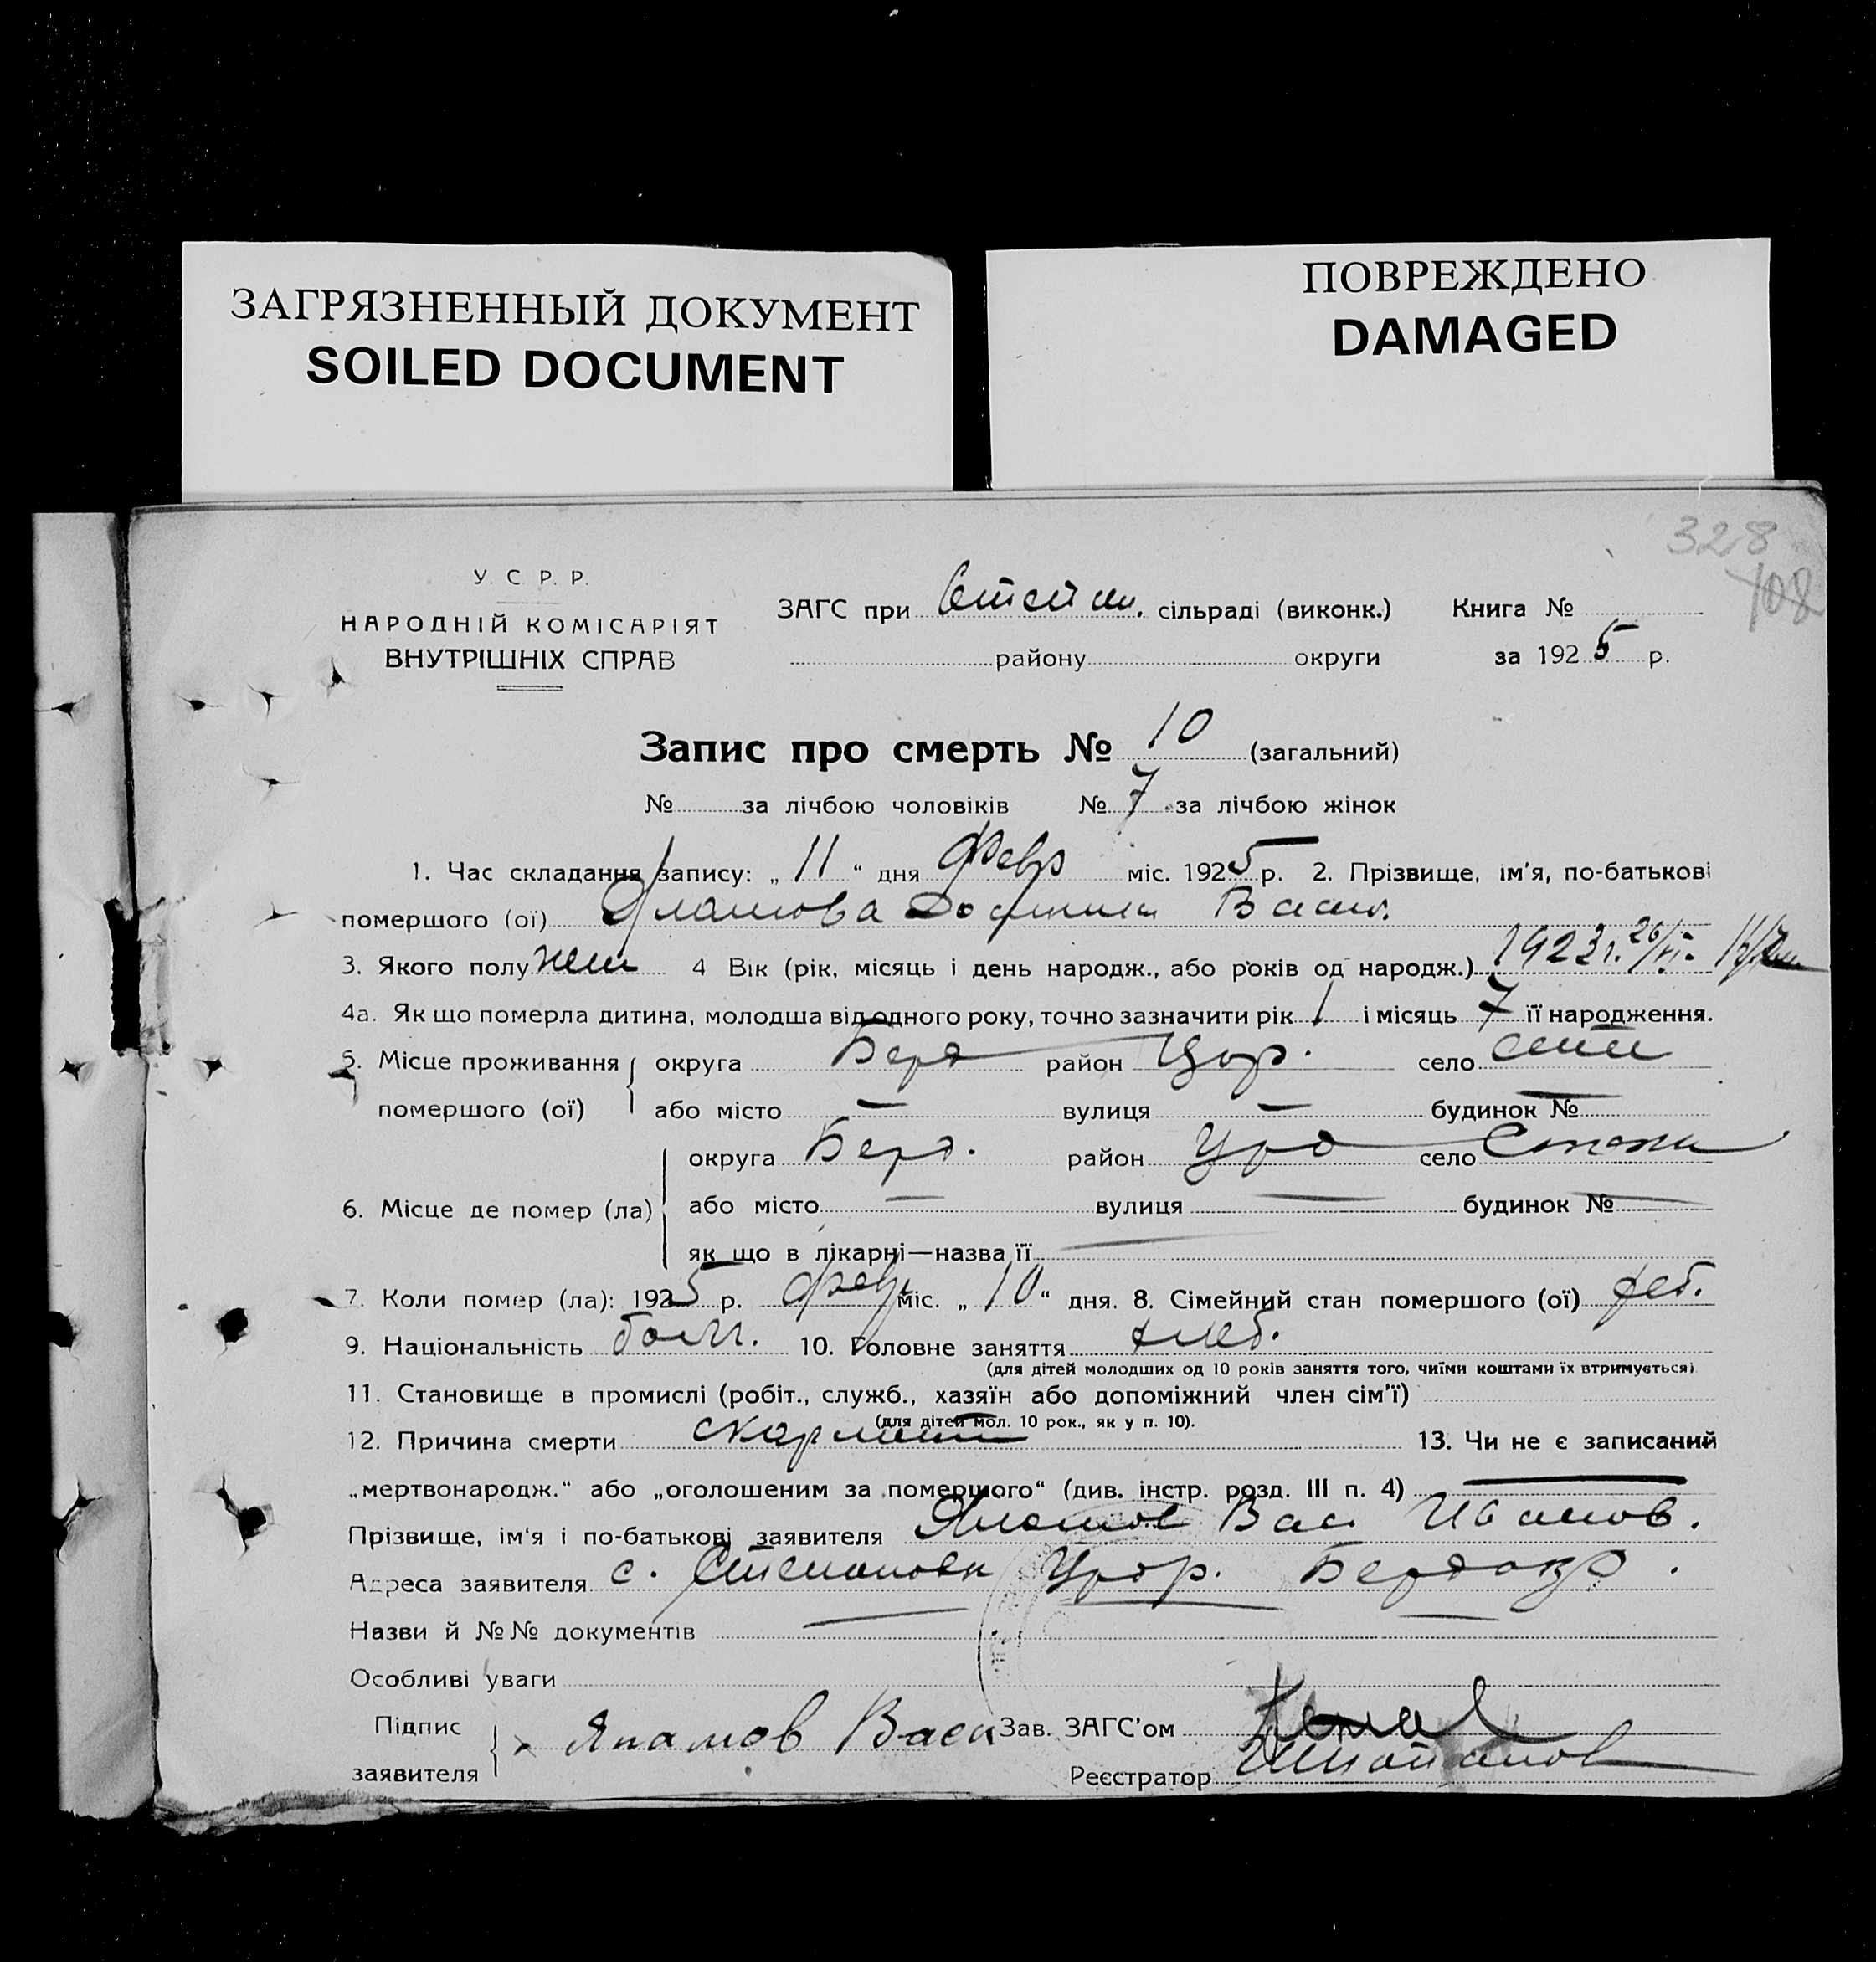 ЗАГРЯЗНЕННЫЙ ДОКУМЕНТ
SOILED DOCUMENT
ПОВРЕЖДЕНО
DAMAGED
328
108
У. С. Р. Р.
НАРОДНІЙ КОМІСАРІЯТ
ВНУТРІШНІХ СПРАВ
ЗАГС при сільраді (виконк.) Книга №
району округи за 1925 р.
Запис про смерть № 10 (загальний)
№ за лічбою чоловіків № 7 за лічбою жінок
1. Час складання запису: „ 11 “ дня Февр міс. 1925 р. 2. Прізвище, ім'я, по-батькові
помершого (ої) Васил.
3. Якого полу жен 4 Вік (рік, місяць і день народж., або років од народж.) 1923 г. 26/VI.
4а. Як що померла дитина, молодша від одного року, точно зазначити рік 1 і місяць 7 її народження.
5. Місце проживання округа Берд район село
помершого (ої) або місто — вулиця — будинок № —
округа Берд. район село
6. Місце де помер (ла) або місто — вулиця — будинок № —
як що в лікарні—назва її —
7. Коли помер (ла): 1925 р. февр міс. „ 10 “ дня. 8. Сімейний стан помершого (ої)
9. Національність болг. 10. Головне заняття хлеб.
(для дітей молодших од 10 років заняття того, чиїми коштами їх втримується)
11. Становище в промислі (робіт., служб., хазяїн або допоміжний член сім'ї)
(для дітей мол. 10 рок., як у п. 10).
12. Причина смерти скарлатин 13. Чи не є записаний
„мертвонародж.“ або „оголошеним за померщого“ (див. інстр. розд. III п. 4) —
Прізвище, ім'я і по-батькові заявителя Вас Иванов.
Адреса заявителя с. Степановка
Назви й №№ документів —
Особливі уваги
Підпис
заявителя Япамов Васи Зав. ЗАГС'ом
Реєстратор